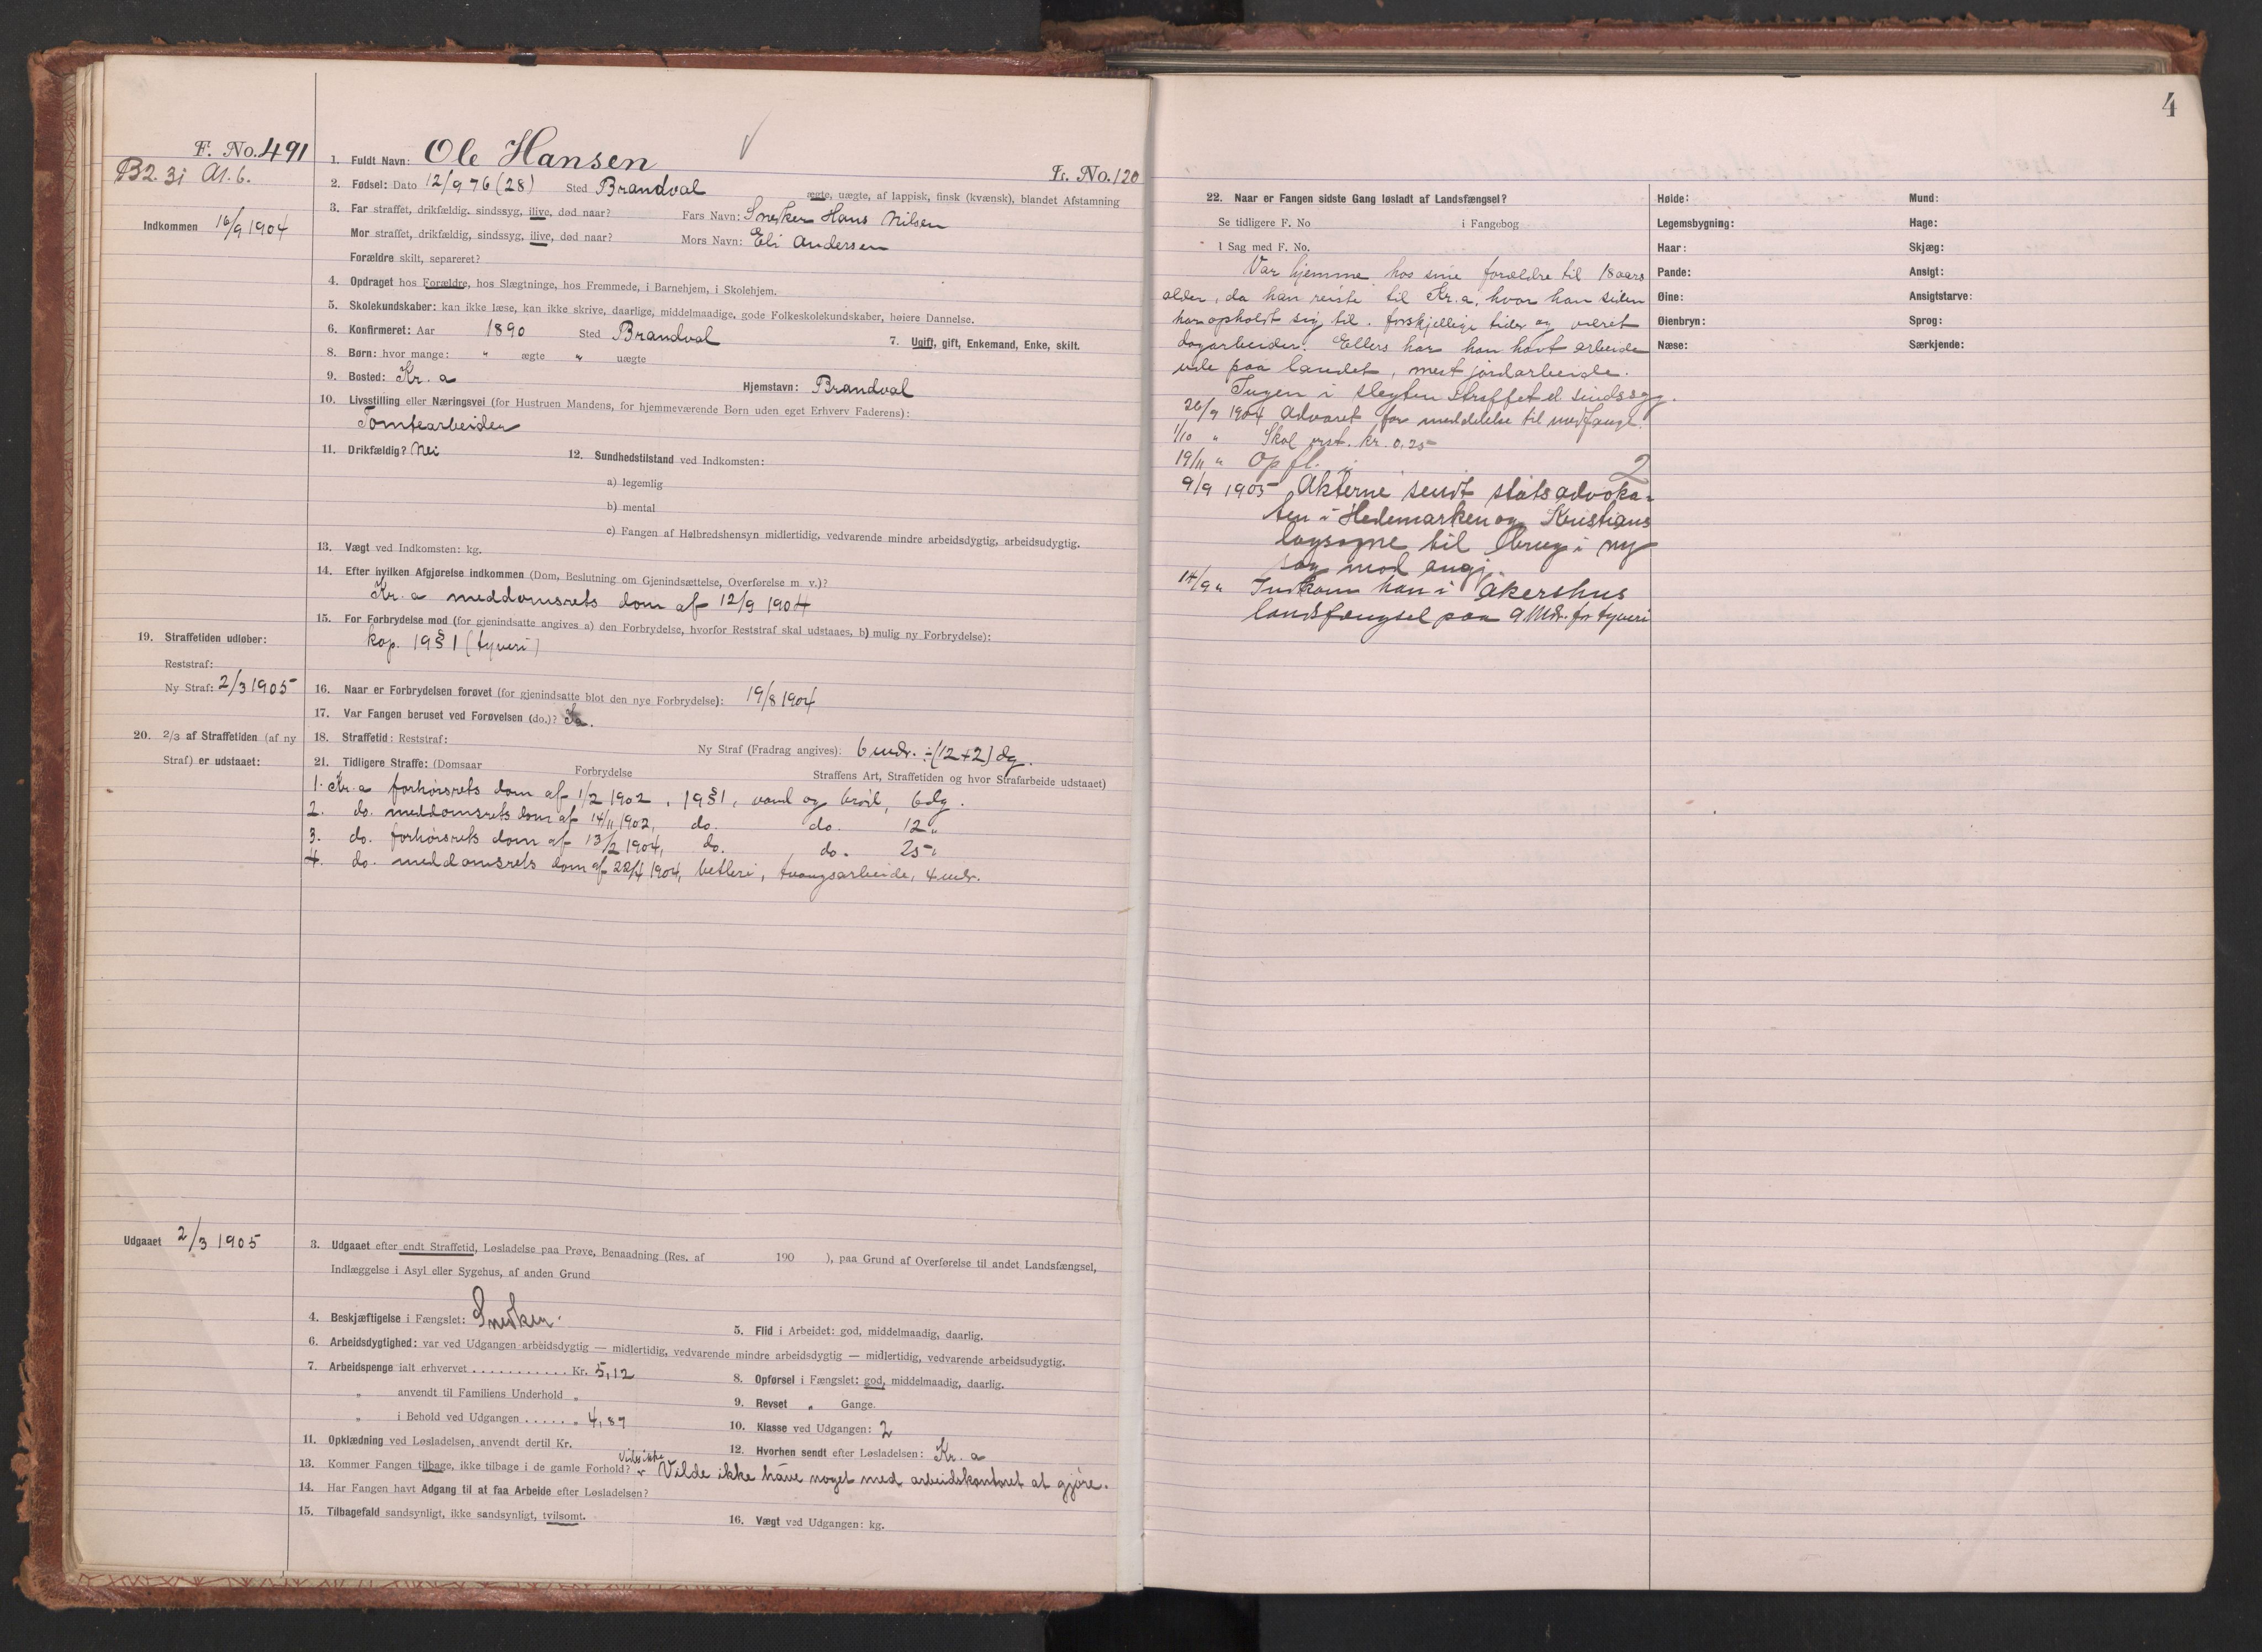 4
F. No. 491
B2. 3i A1. 6.
Indkommen 16/9 1904
1. Fuldt Navn: Ole Hansen
Fr. No. 120
2. Fødsel: Dato 12/9 76 (28) Sted Brandval ægte, uægte, af lappisk, finsk (kvænsk), blandet Afstamning
3. Far straffet, drikfældig, sindssyg, ilive, død naar? Fars Navn: Snekker Hans Nilsen
Mor straffet, drikfældig, sindssyg, ilive, død naar? Mors Navn: Eli Andersen
Forældre skilt, separeret?
4. Opdraget hos Forældre, hos Slægtninge, hos Fremmede, i Barnehjem, i Skolehjem.
5. Skolekundskaber: kan ikke læse, kan ikke skrive, daarlige, middelmaadige, gode Folkeskolekundskaber, høiere Dannelse.
6. Konfirmeret: Aar 1890 Sted Brandval 7. Ugift, gift, Enkemand, Enke, skilt.
8. Børn: hvor mange: " ægte " uægte
9. Bosted: Kr. a Hjemstavn: Brandval
10. Livsstilling eller Næringsvei (for Hustruen Mandens, for hjemmeværende Børn uden eget Erhverv Faderens):
Tomtearbeider
11. Drikfældig? Nei 12. Sundhedstilstand ved Indkomsten:
a) legemlig
b) mental
c) Fangen af Helbredshensyn midlertidig, vedvarende mindre arbeidsdygtig, arbeidsudygtig.
13. Vægt ved Indkomsten: kg.
14. Efter hvilken Afgjørelse indkommen (Dom, Beslutning om Gjenindsættelse, Overførelse m. v.)?
Kr. a meddomsrets dom af 12/9 1904
15. For Forbrydelse mod (for gjenindsatte angives a) den Forbrydelse, hvorfor Reststraf skal udstaaes, b) mulig ny Forbrydelse):
kap. 19 § 1 (tyveri)
19. Straffetiden udløber:
Reststraf:
Ny Straf: 2/3 1905
16. Naar er Forbrydelsen forøvet (for gjenindsatte blot den nye Forbrydelse): 19/8 1904
17. Var Fangen beruset ved Forøvelsen (do.)? Ja.
20. 2/3 af Straffetiden (af ny
Straf) er udstaaet:
18. Straffetid: Reststraf: Ny Straf (Fradrag angives): 6 mdr. ÷ (12+2) dg.
21. Tidligere Straffe: (Domsaar Forbrydelse Straffens Art, Straffetiden og hvor Strafarbeide udstaaet)
1. Kr. a forhørsrets dom af 1/2 1902, 19 § 1, vand og brød, 6 dg.
2. do. meddomsrets dom af 14/11 1902, do. do. 12 "
3. do. forhørsrets dom af 13/2 1904, do. do. 25 "
4. do. meddomsrets dom af 22/4 1904, betleri, tvangsarbeide, 4 mdr.
Udgaaet 2/3 1905
3. Udgaaet efter endt Straffetid, Løsladelse paa Prøve, Benaadning (Res. af 190 ), paa Grund af Overførelse til andet Landsfængsel,
Indlæggelse i Asyl eller Sygehus, af anden Grund
4. Beskjæftigelse i Fængslet: Snedker. 5. Flid i Arbeidet: god, middelmaadig, daarlig.
6. Arbeidsdygtighed: var ved Udgangen arbeidsdygtig — midlertidig, vedvarende mindre arbeidsdygtig — midlertidig, vedvarende arbeidsudygtig.
7. Arbeidspenge ialt erhvervet ........... Kr. 5,12 8. Opførsel i Fængslet: god, middelmaadig, daarlig.
" anvendt til Familiens Underhold " 9. Revset " Gange.
" i Behold ved Udgangen ..... " 4,89 10. Klasse ved Udgangen: 2
11. Opklædning ved Løsladelsen, anvendt dertil Kr. 12. Hvorhen sendt efter Løsladelsen: Kr. a
Vides ikke
13. Kommer Fangen tilbage, ikke tilbage i de gamle Forhold? Vilde ikke have noget med arbeidskontoret at gjøre.
14. Har Fangen havt Adgang til at faa Arbeide efter Løsladelsen?
15. Tilbagefald sandsynligt, ikke sandsynligt, tvilsomt. 16. Vægt ved Udgangen: kg.
22. Naar er Fangen sidste Gang løsladt af Landsfængsel?
Se tidligere F. No i Fangebog
I Sag med F. No.
Var hjemme hos sine forældre til 18 aars
alder, da han reiste til Kr. a, hvor han siden
har opholdt sig til forskjellige tider og været
dagarbeider. Ellers har han havt arbeide
ude paa landet, mest jordarbeide.
Ingen i slegten straffet el. sindssyg.
26/9 1904 Advaret for meddelelse til medfange.
1/10 " Skal erst. kr. 0.25
19/11 " Opfl. i 2
9/9 1905 Akterne sendt statsadvoka-
ten i Hedemarken og Kristians
lagsogne til brug i ny
sag mod angj.
14/9 " Indkom han i Akershus
landsfængsel paa 9 Mdr. for tyveri
Høide: Mund:
Legemsbygning: Hage:
Haar: Skjæg:
Pande: Ansigt:
Øine: Ansigtstarve:
Øienbryn: Sprog:
Næse: Særkjende: